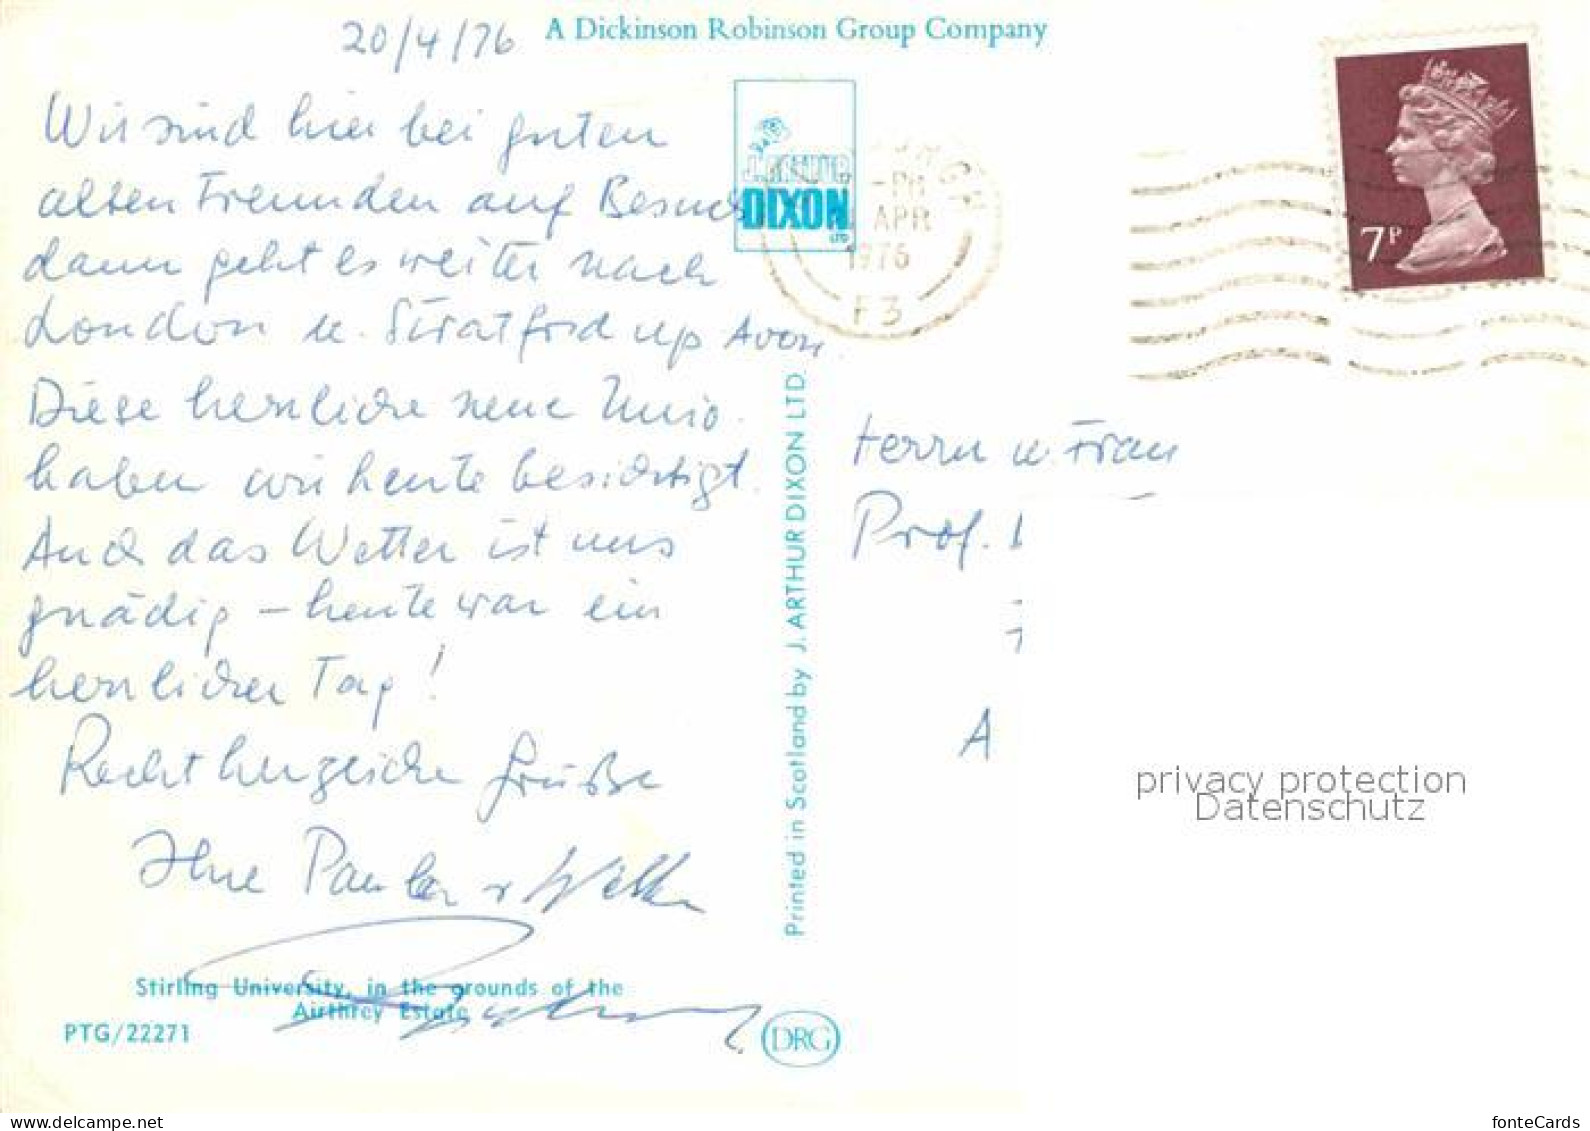 20/4/76
A Dickinson Robinson Group Company
Wir sind hier bei guten
alten Freunden auf Besuch
dann geht es weiter nach
London u. Stratford up Avon
Diese herrliche neue Univ.
haben wir heute besichtigt.
Auch das Wetter ist uns
gnädig – heute war ein
herrlicher Tag!
Recht herzliche Grüße
Ihre
Stirling University, in the grounds of the
Airthrey Estate
PTG/22271
J. ARTHUR
DIXON
LTD
Printed in Scotland by J. ARTHUR DIXON LTD.
DRG
PM
APR
1976
F3
7P
Herrn u. Frau
Prof.
A
privacy protection
Datenschutz
www.delcampe.net
fonteCards